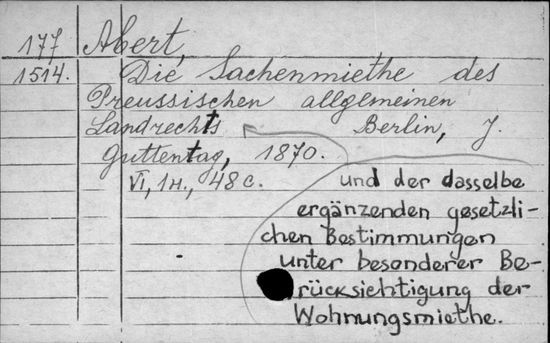 177 Abert,
1514. Die Sachenmiethe des
Preussischen allgemeinen
Landrechts Berlin, J.
Guttentag, 1870.
VI, 1н., 48 с.
und der dasselbe
ergänzenden gesetzli-
chen Bestimmungen
unter besonderer Be-
rücksichtigung der
Wohnungsmiethe.